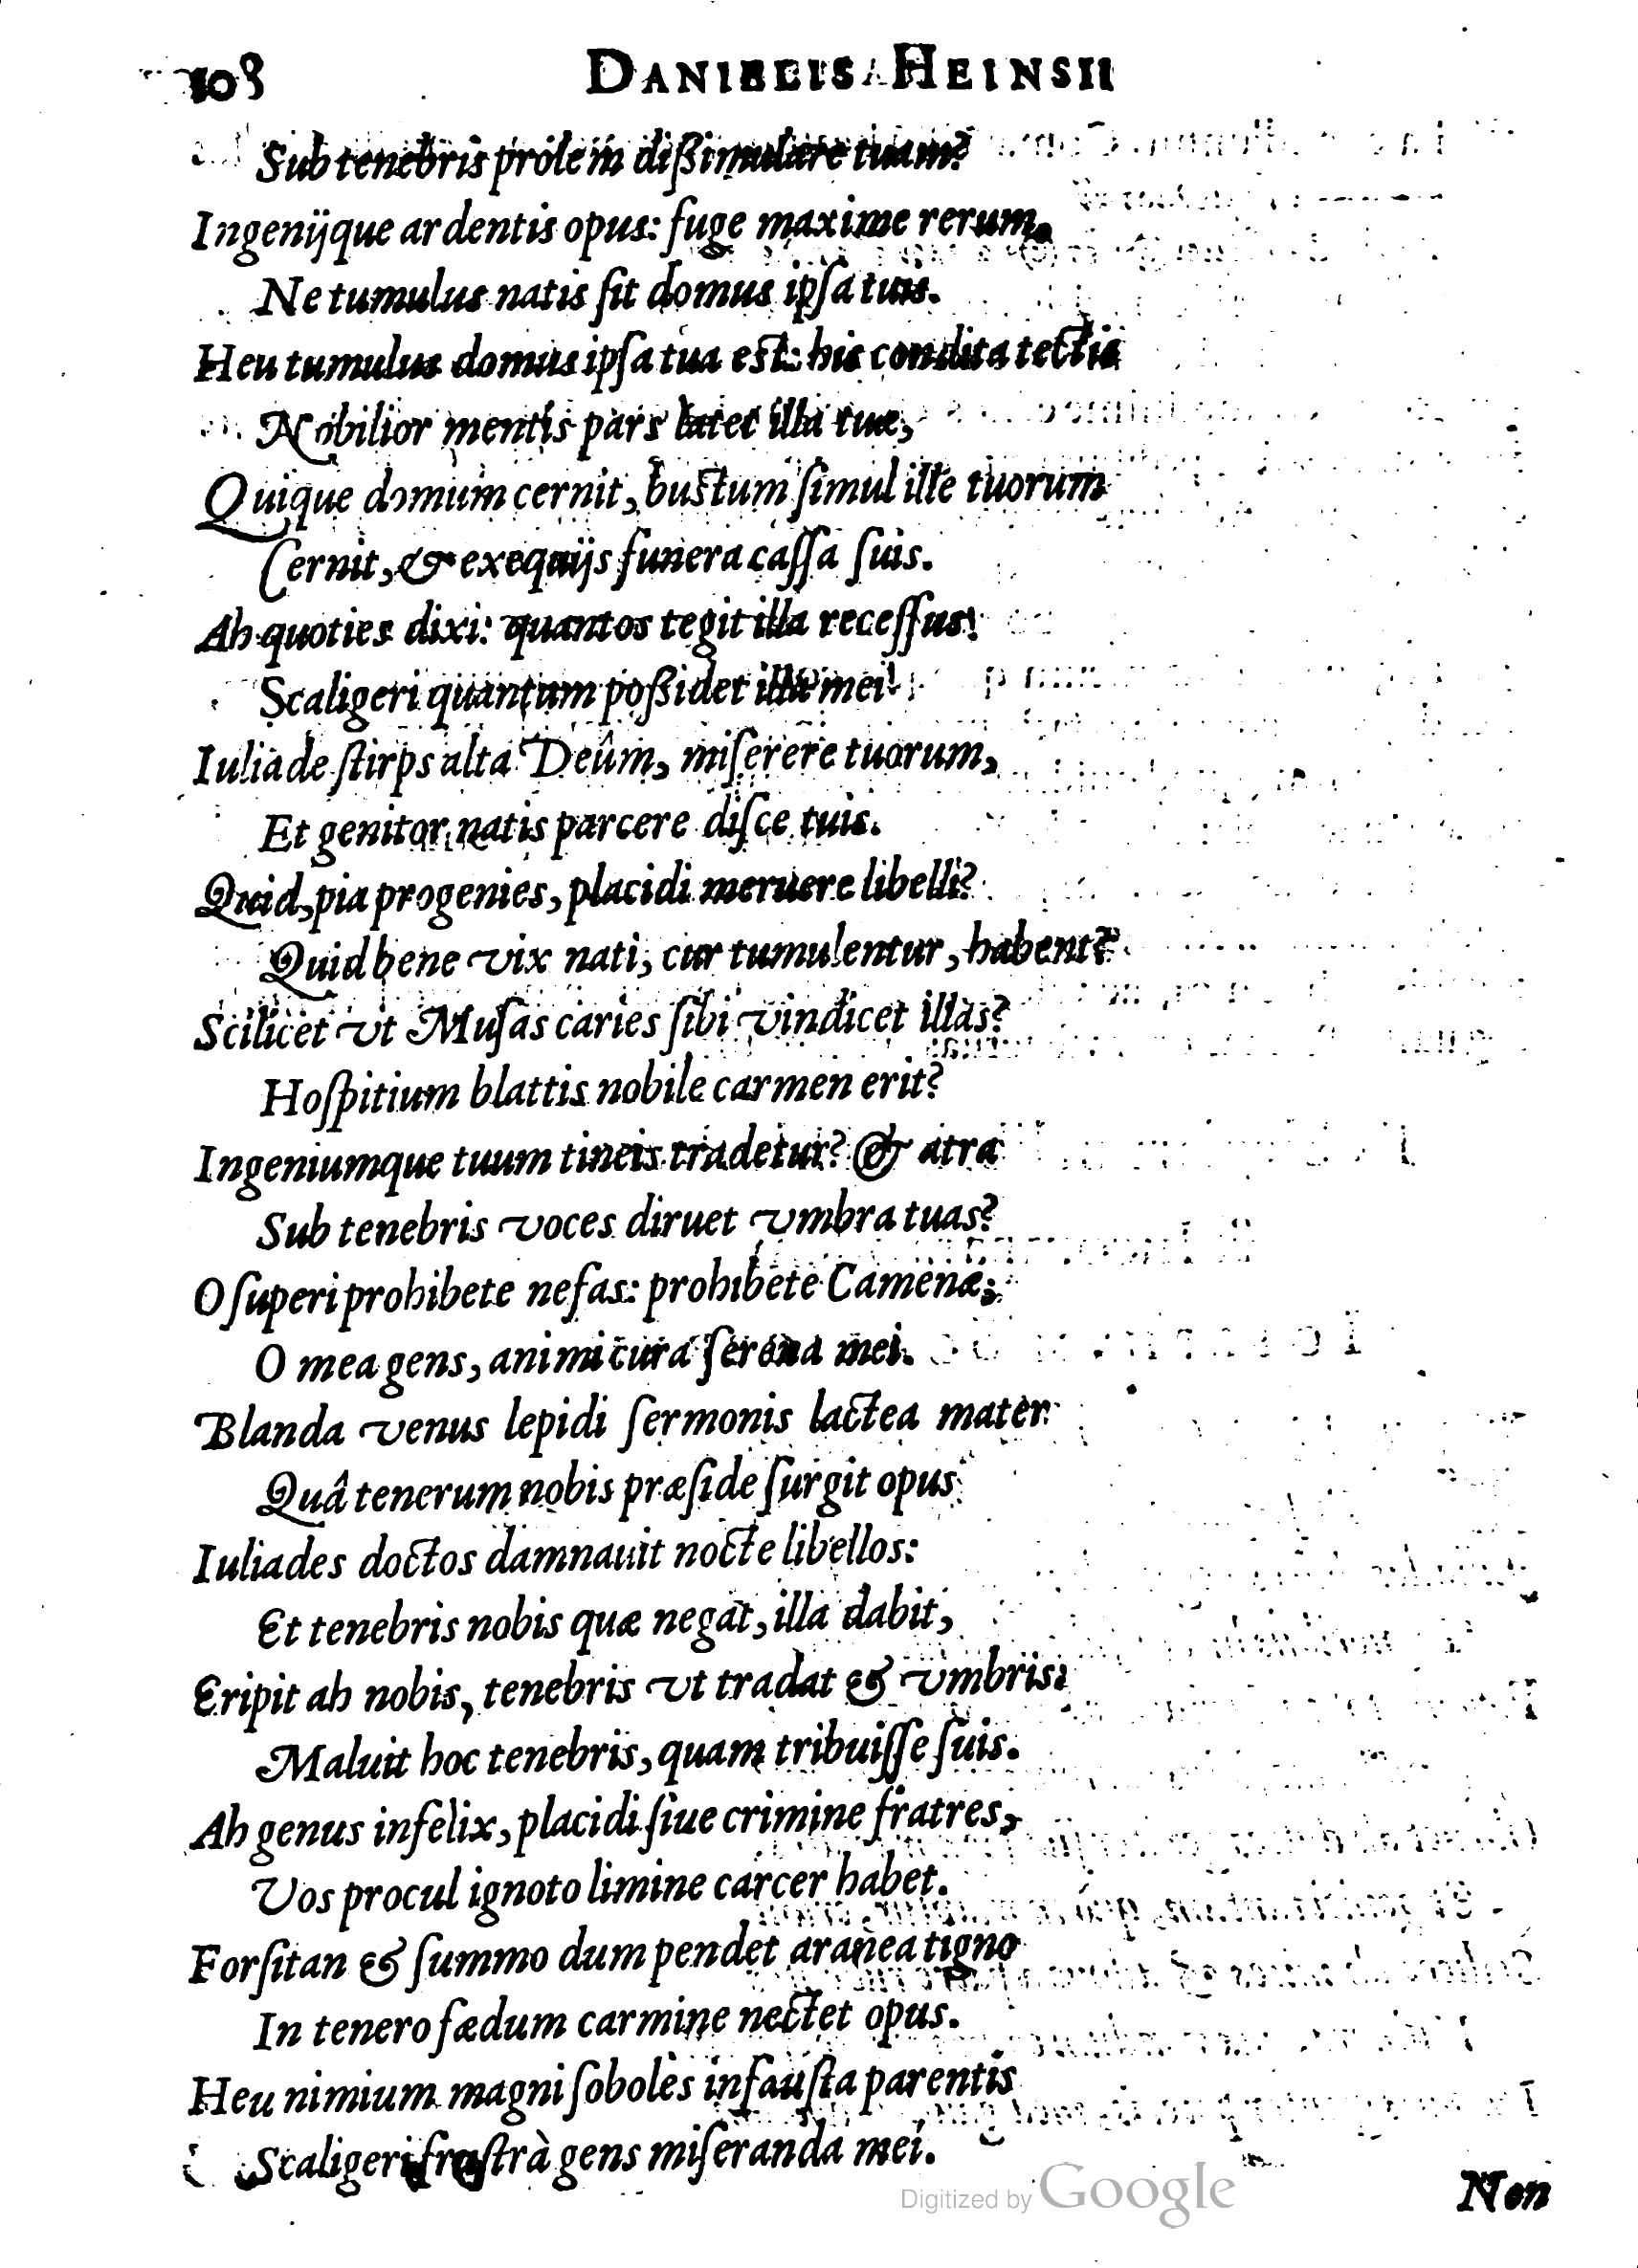 108 DANIELIS HEINSII
Sub tenebris prolem dißimulare tuam?
Ingenijque ardentis opus: fuge maxime rerum,
Ne tumulus natis sit domus ipsa tuis.
Heu tumulus domus ipsa tua est: his condita tectis
Nobilior mentis pars latet illa tuæ,
Quique domum cernit, bustum simul ille tuorum
Cernit, & exequijs funera cassa suis.
Ah quoties dixi: quantos tegit illa recessus!
Scaligeri quantum poßidet illa mei!
Iuliade stirps alta Deûm, miserere tuorum,
Et genitor natis parcere disce tuis.
Quid, pia progenies, placidi meruere libelli?
Quid bene vix nati, cur tumulentur, habent?
Scilicet vt Musas caries sibi vindicet illas?
Hospitium blattis nobile carmen erit?
Ingeniumque tuum tineis tradetur? & atra
Sub tenebris voces diruet vmbra tuas?
O superi prohibete nefas: prohibete Camenæ;
O mea gens, animi cura serena mei.
Blanda venus lepidi sermonis lactea mater
Quâ tenerum nobis præside surgit opus
Iuliades doctos damnauit nocte libellos:
Et tenebris nobis quæ negat, illa dabit,
Eripit ah nobis, tenebris vt tradat & vmbris:
Maluit hoc tenebris, quam tribuisse suis.
Ah genus infelix, placidi siue crimine fratres,
Vos procul ignoto limine carcer habet.
Forsitan & summo dum pendet aranea tigno
In tenero fædum carmine nectet opus.
Heu nimium magni soboles infausta parentis
Scaligeri frustrà gens miseranda mei.
Non
Digitized by Google